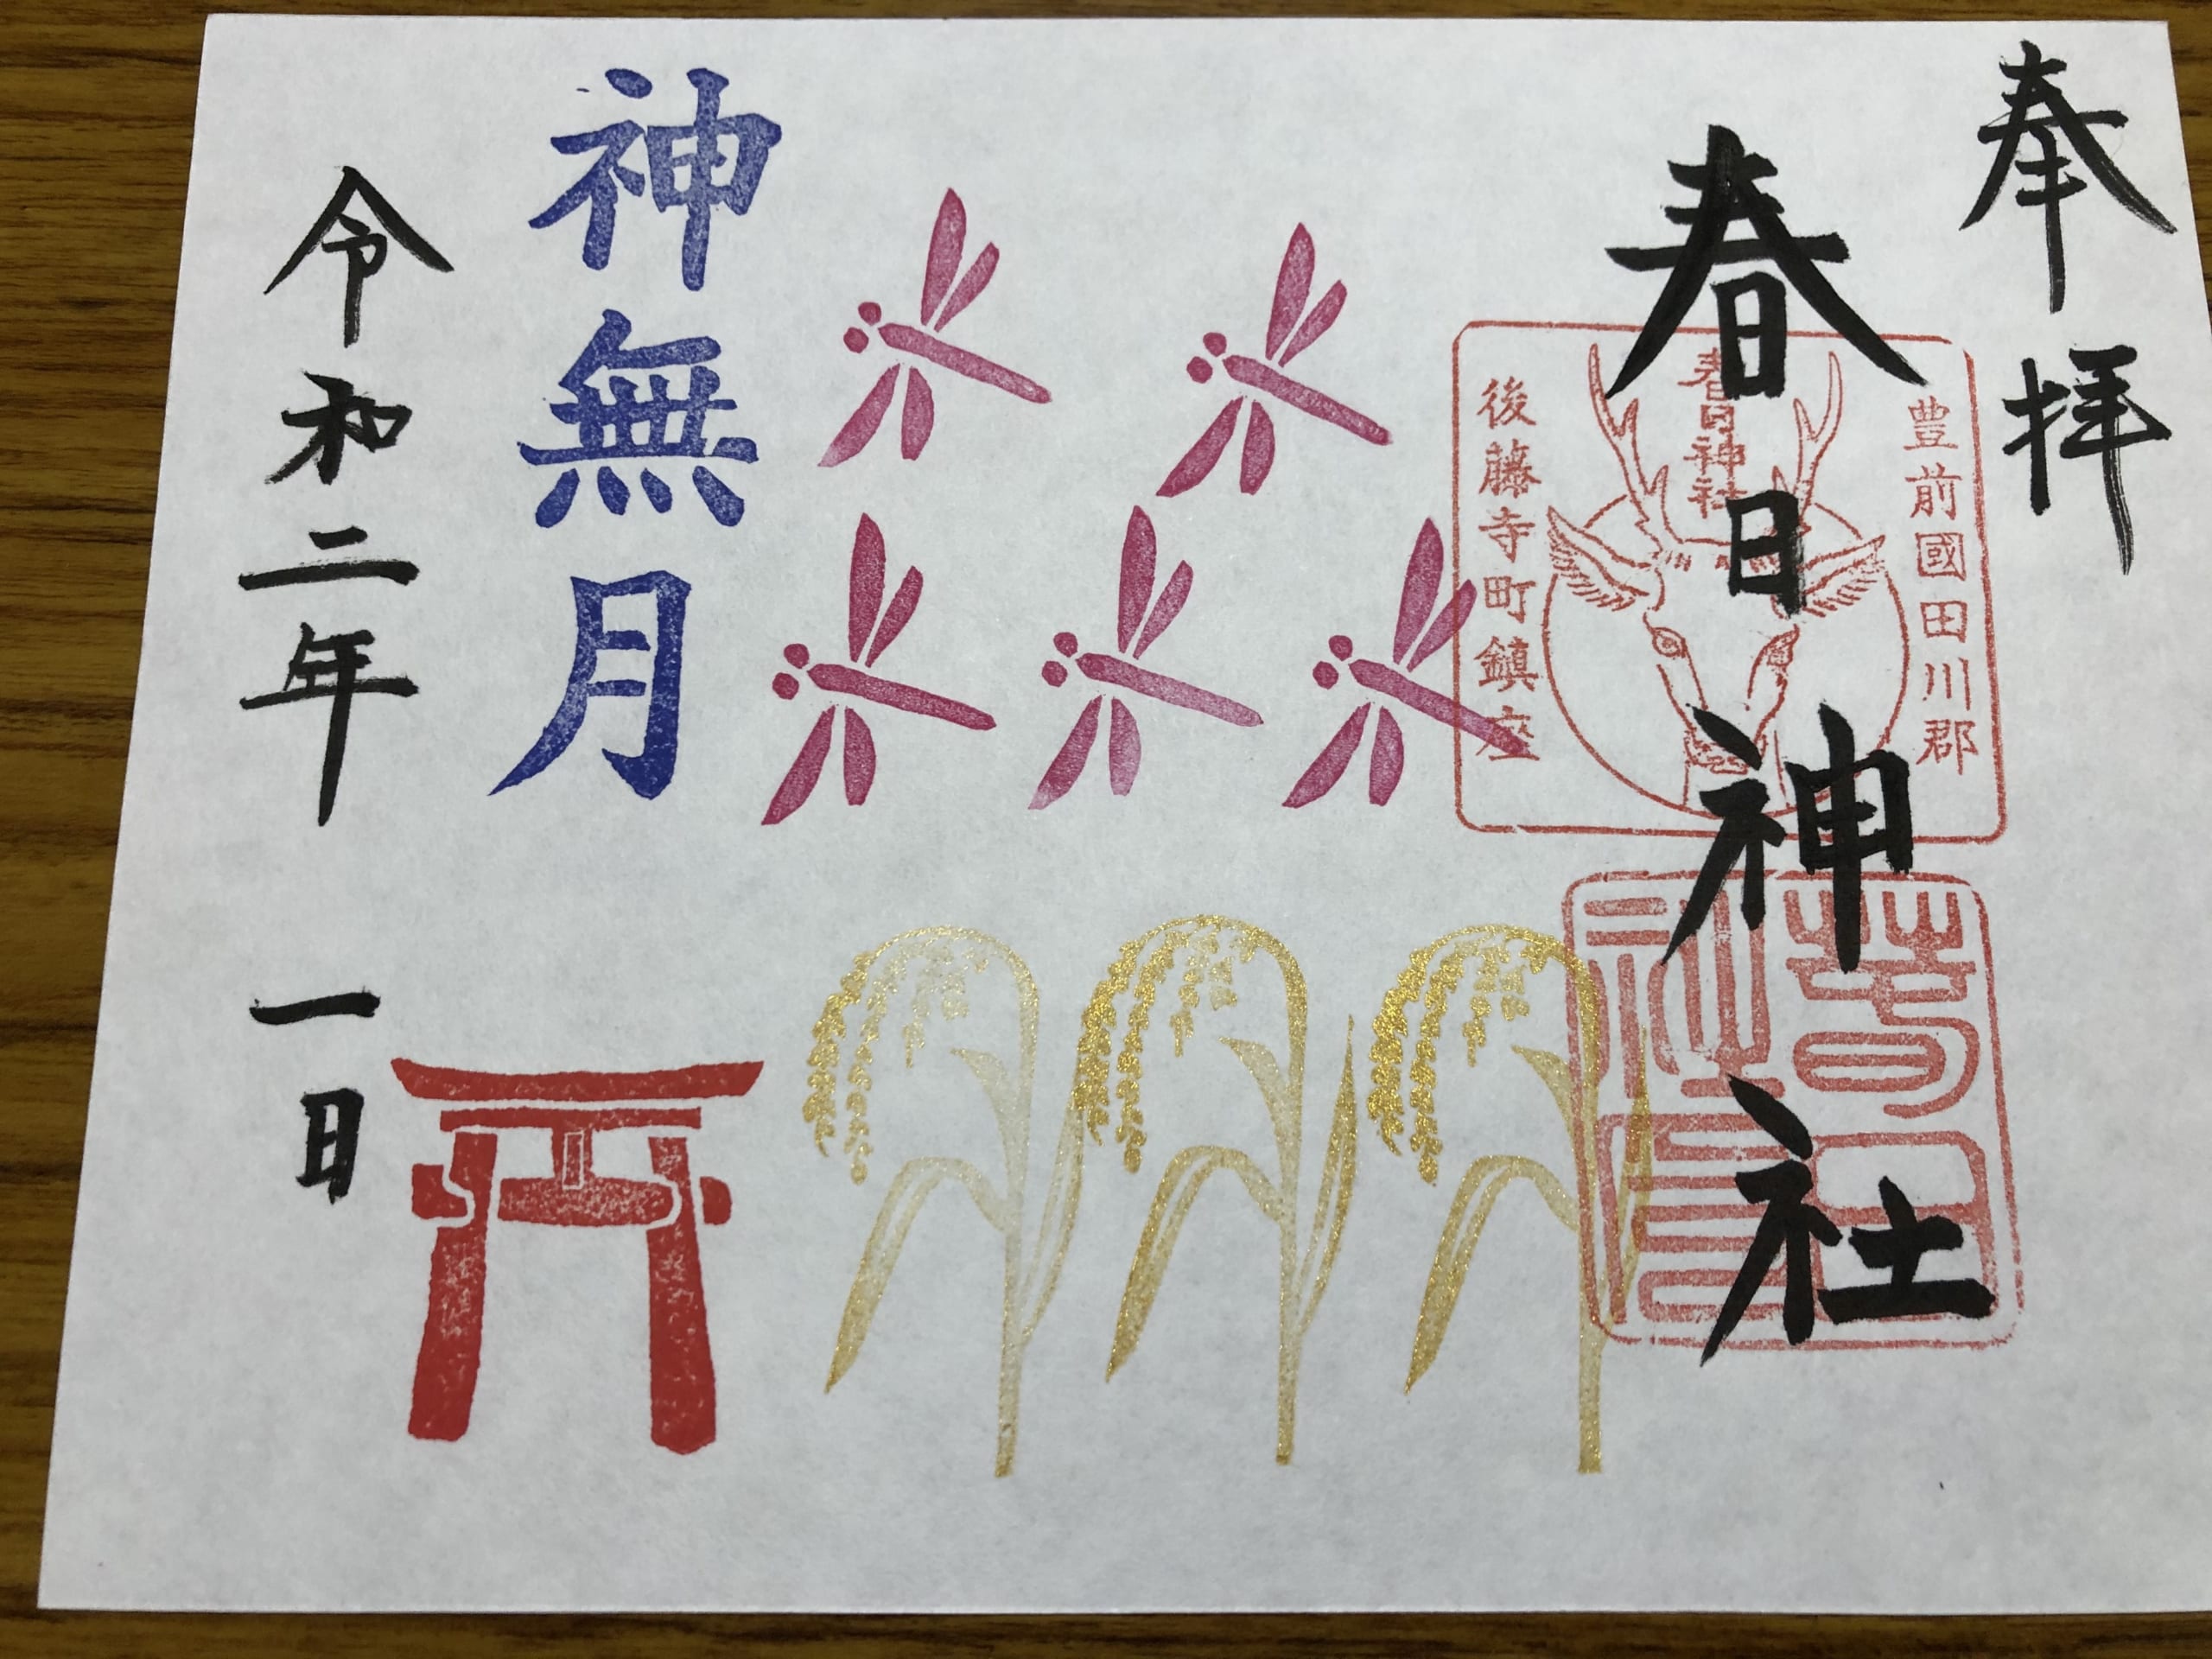 奉拝
春日神社
豊前國田川郡
春日神社
後藤寺町鎮座
神無月
令和二年 一日